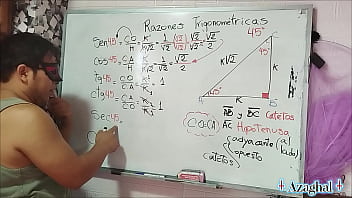 Razones Trigonométricas
Sen45° = CO/H = K/K√2 = 1/√2 (√2/√2) = √2/√2√2 = √2/2
Cos45° = CA/H = K/K√2 = 1/√2 = √2/2
tg45° = CO/CA = K/K = 1
ctg45° = CA/CO = K/K = 1
Sec45°
45°
K√2
K
45°
K
AB y BC Catetos
(CO=CA) AC Hipotenusa
catetos
adyacente (al lado)
opuesto
Azaghal